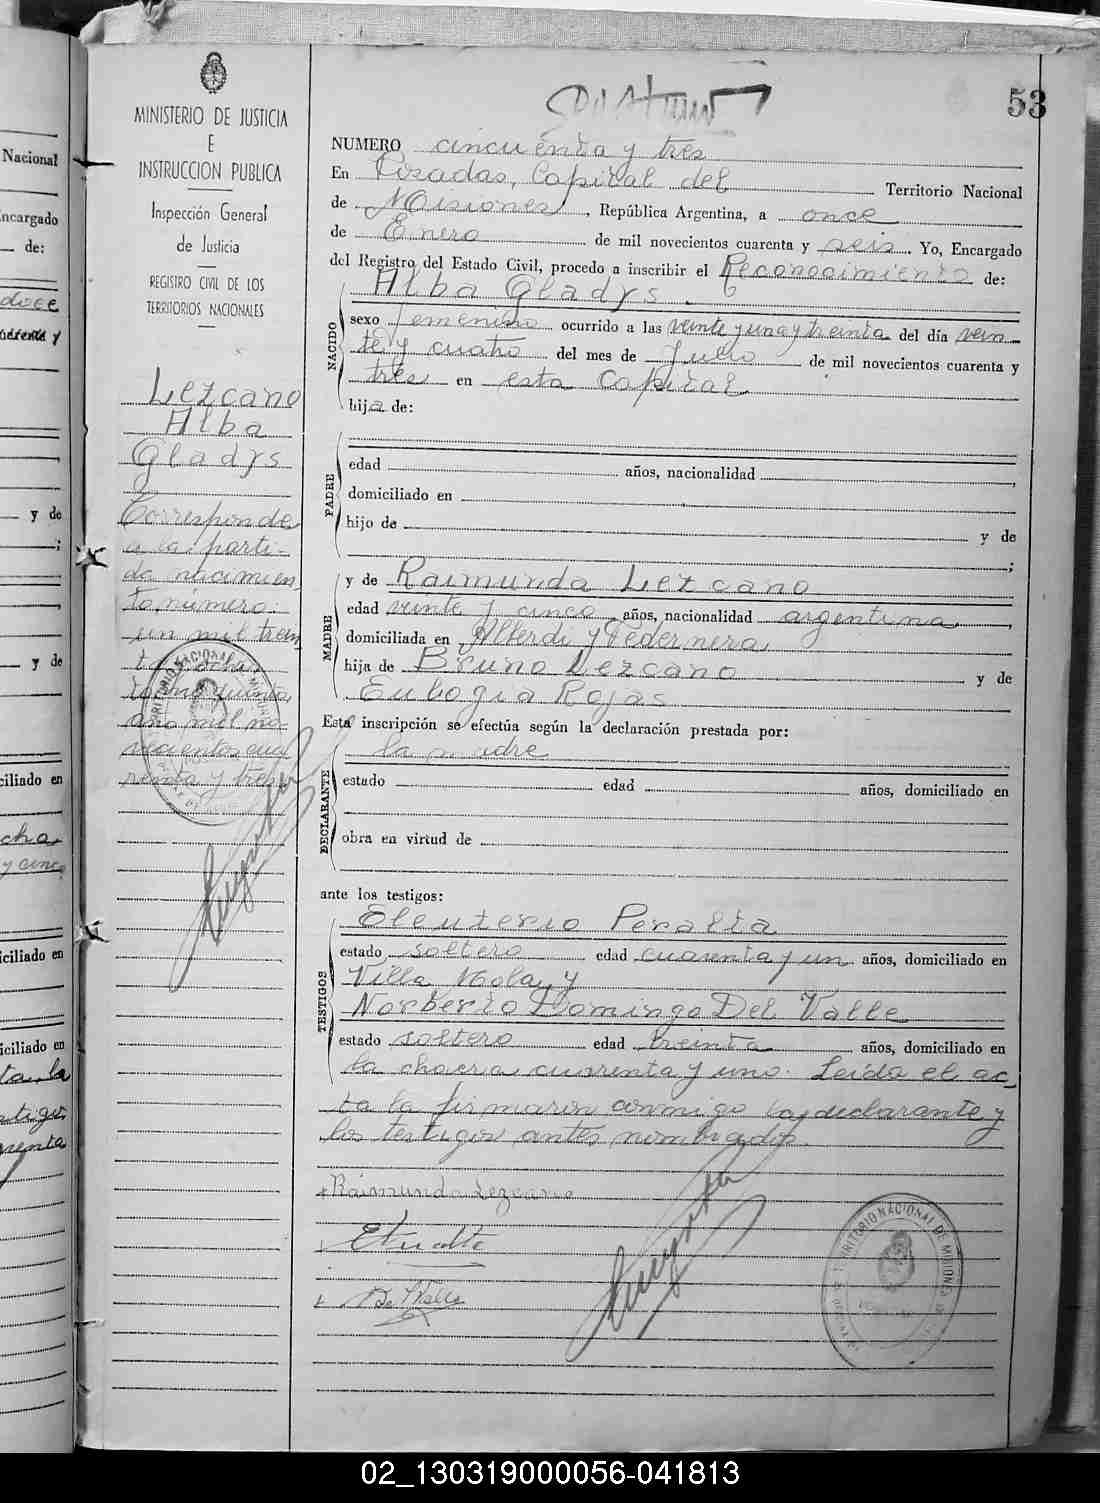 53
MINISTERIO DE JUSTICIA
E
INSTRUCCION PUBLICA
Inspección General
de Justicia
REGISTRO CIVIL DE LOS
TERRITORIOS NACIONALES
Lezcano
Alba
Gladys
Corresponde
a la parti-
da nacimien
to número
un mil trein
ta y ocho,
tomo quinto,
año mil no-
vecientos cua
renta y tres
NUMERO cincuenta y tres
En Posadas, Capital del Territorio Nacional
de Misiones, República Argentina, a once
de Enero de mil novecientos cuarenta y seis. Yo, Encargado
del Registro del Estado Civil, procedo a inscribir el Reconocimiento de:
Alba Gladys.
NACIDO
sexo femenino ocurrido a las veinte y una y treinta del día vein-
te y cuatro del mes de Julio de mil novecientos cuarenta y
tres en esta Capital
hija de:
PADRE
edad años, nacionalidad
domiciliado en
hijo de y de
;
MADRE
y de Raimunda Lezcano
edad veinte y cinco años, nacionalidad argentina,
domiciliada en Alberdi y Pedernera,
hija de Bruno Lezcano y de
Eulogia Rojas
Esta inscripción se efectúa según la declaración prestada por:
la madre
DECLARANTE
estado edad años, domiciliado en
obra en virtud de
ante los testigos:
Eleuterio Peralta
TESTIGOS
estado soltero edad cuarenta y un años, domiciliado en
Villa Mola, y
Norberto Domingo Del Valle
estado soltero edad treinta años, domiciliado en
la chacra cuarenta y uno. Leída el ac-
ta la firmaron conmigo la declarante y
los testigos antes nombrados.
Raimunda Lezcano
TERRITORIO NACIONAL DE MISIONES
Nacional
Encargado
de:
doce
y de
;
y de
ciliado en
y cinco
iciliado en
iciliado en
02_130319000056-041813